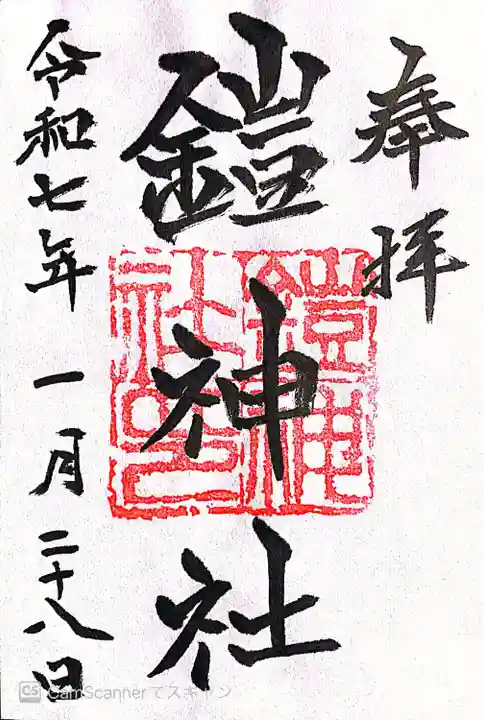 奉拝
鎧神社
鎧神社印
令和七年 一月二十八日
CS CamScannerでスキャン